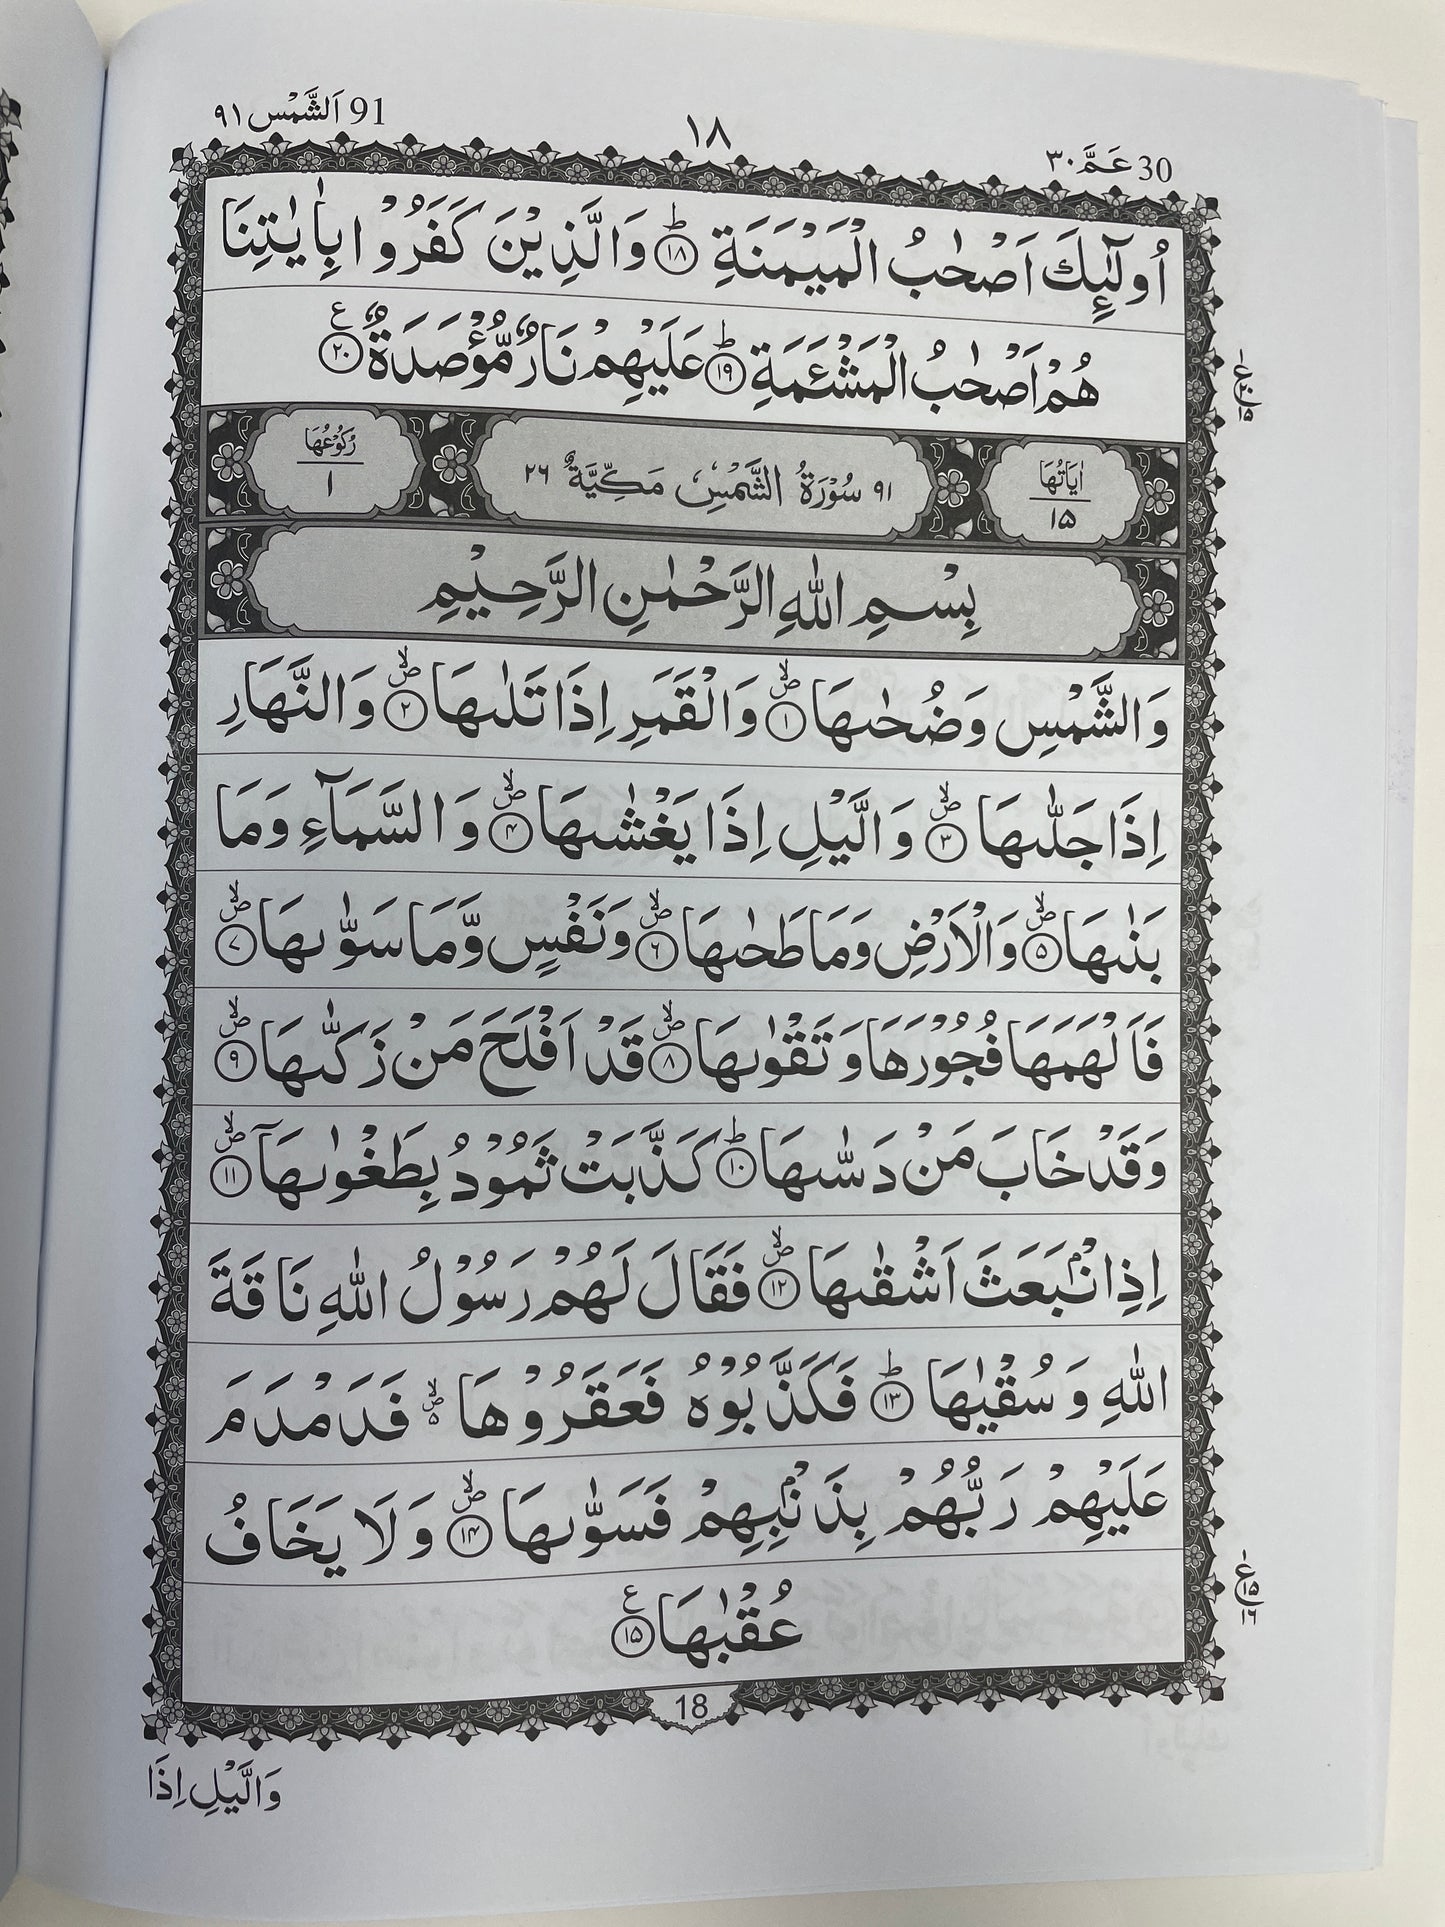 اَلشَّمْس ٩١ 91
١٨
30 عَمَّ ٣٠
اُولٰٓئِكَ اَصْحٰبُ الْمَيْمَنَةِ ؕ ﴿۱۸﴾ وَالَّذِيْنَ كَفَرُوْا بِاٰيٰتِنَا
هُمْ اَصْحٰبُ الْمَشْئَمَةِ ؕ ﴿۱۹﴾ عَلَيْهِمْ نَارٌ مُّؤْصَدَةٌ ﴿۲۰﴾ ع
اٰيَاتُهَا ۱۵
۹۱ سُوْرَةُ الشَّمْسِ مَكِّيَّةٌ ۲۶
رُكُوْعُهَا ۱
بِسْمِ اللّٰهِ الرَّحْمٰنِ الرَّحِيْمِ
وَالشَّمْسِ وَضُحٰىهَا ۪ۙ ﴿۱﴾ وَالْقَمَرِ اِذَا تَلٰىهَا ۪ۙ ﴿۲﴾ وَالنَّهَارِ
اِذَا جَلّٰىهَا ۪ۙ ﴿۳﴾ وَالَّيْلِ اِذَا يَغْشٰىهَا ۪ۙ ﴿۴﴾ وَالسَّمَآءِ وَمَا
بَنٰىهَا ۪ۙ ﴿۵﴾ وَالْاَرْضِ وَمَا طَحٰىهَا ۪ۙ ﴿۶﴾ وَنَفْسٍ وَّمَا سَوّٰىهَا ۪ۙ ﴿۷﴾
فَاَلْهَمَهَا فُجُوْرَهَا وَتَقْوٰىهَا ۪ۙ ﴿۸﴾ قَدْ اَفْلَحَ مَنْ زَكّٰىهَا ۪ۙ ﴿۹﴾
وَقَدْ خَابَ مَنْ دَسّٰىهَا ؕ ﴿۱۰﴾ كَذَّبَتْ ثَمُوْدُ بِطَغْوٰىهَاۤ ۪ۙ ﴿۱۱﴾
اِذِ انْۢبَعَثَ اَشْقٰىهَا ۪ۙ ﴿۱۲﴾ فَقَالَ لَهُمْ رَسُوْلُ اللّٰهِ نَاقَةَ
اللّٰهِ وَسُقْيٰهَا ؕ ﴿۱۳﴾ فَكَذَّبُوْهُ فَعَقَرُوْهَا ۪ۙ ۵ فَدَمْدَمَ
عَلَيْهِمْ رَبُّهُمْ بِذَنْۢبِهِمْ فَسَوّٰىهَا ۪ۙ ﴿۱۴﴾ وَلَا يَخَافُ
عُقْبٰهَا ﴿۱۵﴾ ع
18
وَالَّيْلِ اِذَا